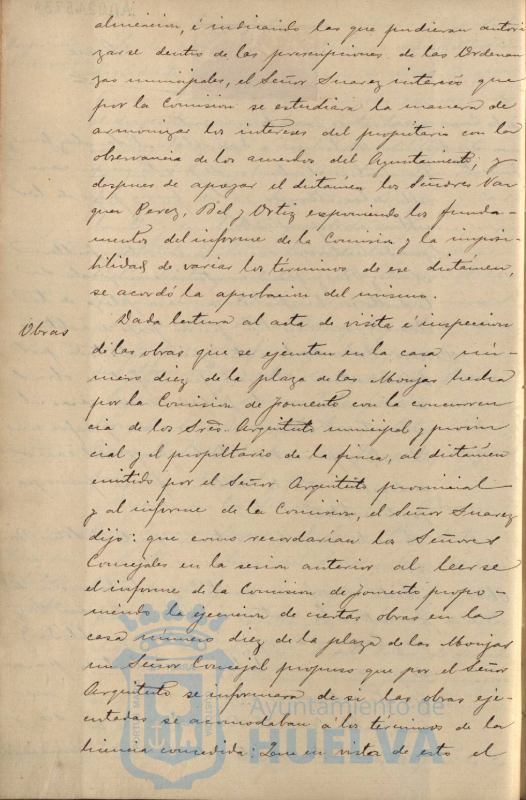 alineación, é indicando las que pudieran autori
zarse dentro de las prescripciones de las Ordenan
zas municipales, el Señor Suarez interesó que
por la Comision se estudiara la manera de
armonizar los intereses del propietario con la
observancia de los acuerdos del Ayuntamiento, y
despues de apoyar el dictámen los Señores Vaz
quez Perez, Bel y Ortiz exponiendo los funda-
mentos del informe de la Comision y la imposi-
bilidad de variar los términos de ese dictámen,
se acordó la aprobacion del mismo.
Obras
Dada lectura al acta de visita é inspeccion
de las obras que se ejecutan en la casa nú-
mero diez de la plaza de las Monjas hecha
por la Comision de Fomento con la concurren
cia de los Sres. Arquitecto municipal y provin
cial y el propietario de la finca, al dictámen
emitido por el Señor Arquitecto provincial
y al informe de la Comision, el Señor Suarez
dijo: que como recordarían los Señores
Concejales en la sesion anterior al leerse
el informe de la Comision de Fomento propo-
niendo la ejecucion de ciertas obras en la
casa número diez de la plaza de las Monjas
un Señor Concejal propuso que por el Señor
Arquitecto se informara de si las obras eje-
cutadas se acomodaban á los términos de la
licencia concedida: Que en vista de esto el
Ayuntamiento de
HUELVA